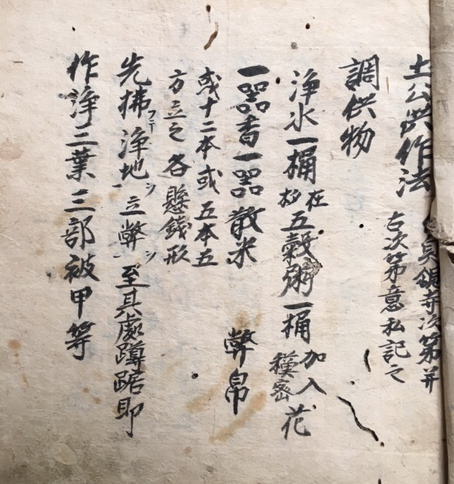 土公供作法
次第并
右次第意私記之
調供物
浄水一桶在杓五穀粥一桶加入糖蜜花
一器香一器散米 幣帛
或十二本或五本五
方立之各懸銭形
先拂浄地シ立幣シ至其處蹲踞即
作浄三業三部被甲等